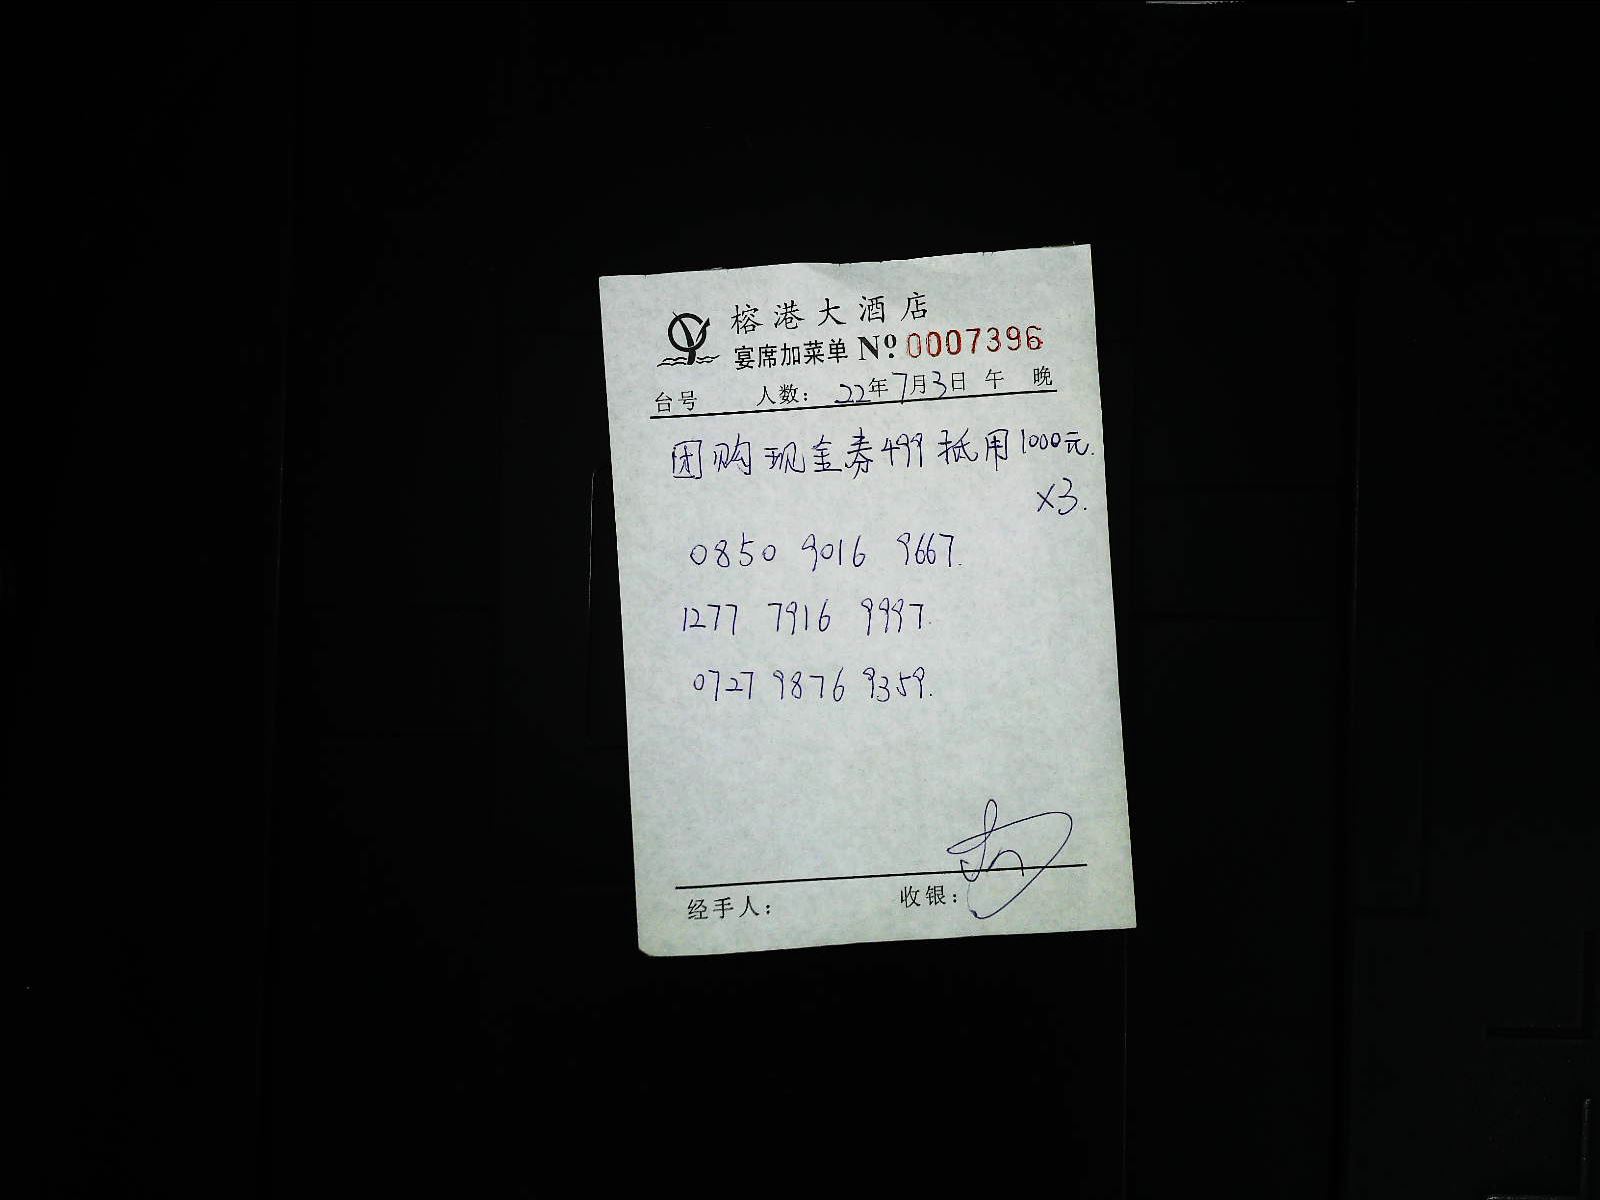 榕港大酒店
宴席加菜单 Nº 0007396
台号 人数： 22年7月3日 午 晚
团购现金券499抵用1000元.
×3.
0850 9016 9667.
1277 7916 9997.
0727 9876 9359.
经手人： 收银：